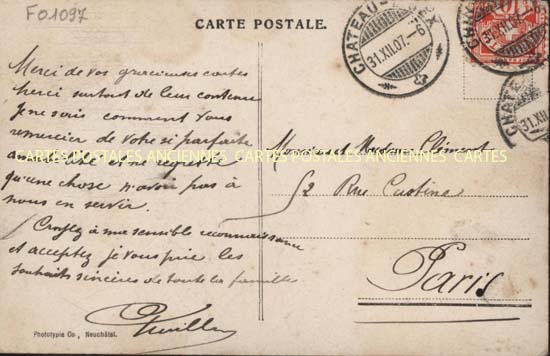 FO1097
CARTE POSTALE.
CHATEAU-D'OEX
31.XII.07.-6
CHATE
31.XII
Merci de vos gracieuses cartes
Merci surtout de leur contenu
Je ne sais comment vous
remercier de votre si parfaite
et ne regrette
qu'une chose n'avoir pas à
nous en servir.
Croyez à ma sensible reconnaissance
et acceptez je vous prie les
souhaits sincères de toute la famille
Monsieur Madame Clément
52 Rue Custine
Paris
CARTES POSTALES ANCIENNES CARTES POSTALES ANCIENNES CARTES
Phototypie Co., Neuchâtel.